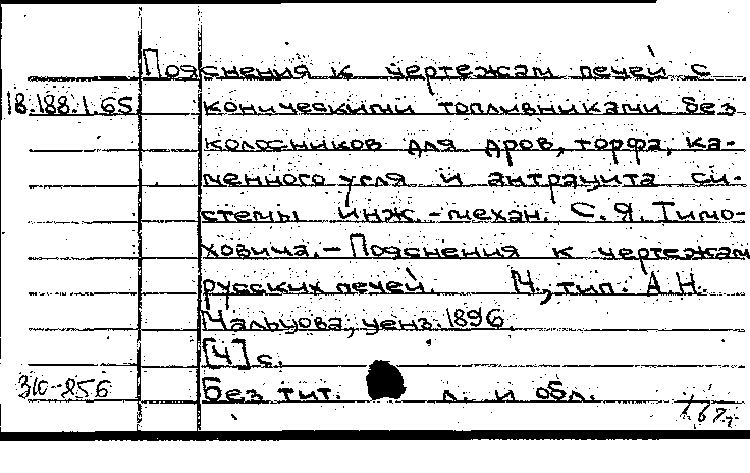 Пояснения к чертежам печей с
18.188.1.65 коническими топливниками без
колосников для дров, торфа, ка-
менного угля и антрацита си-
стемы инж.-механ. С.Я. Тимо-
ховича.- Пояснения к чертежам
русских печей. М., тип. А.Н.
Мальцова, ценз. 1896.
[4] с.
310-856 Без тит. л. и обл.